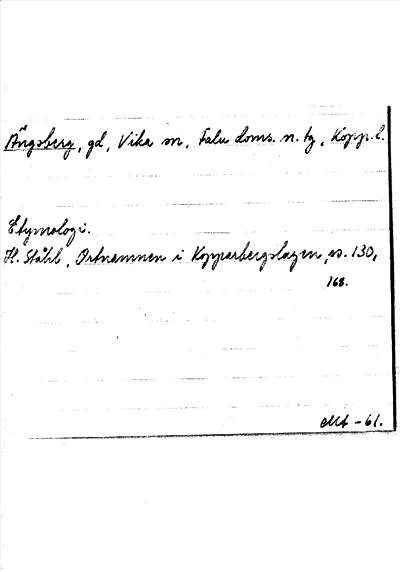 Ängsberg, gd, Vika sn, Falu doms. n. tg, Kopp. l.
Etymologi.
H. Ståhl, Ortnamnen i Kopparbergslagen, s. 130,
168.
MA -61.